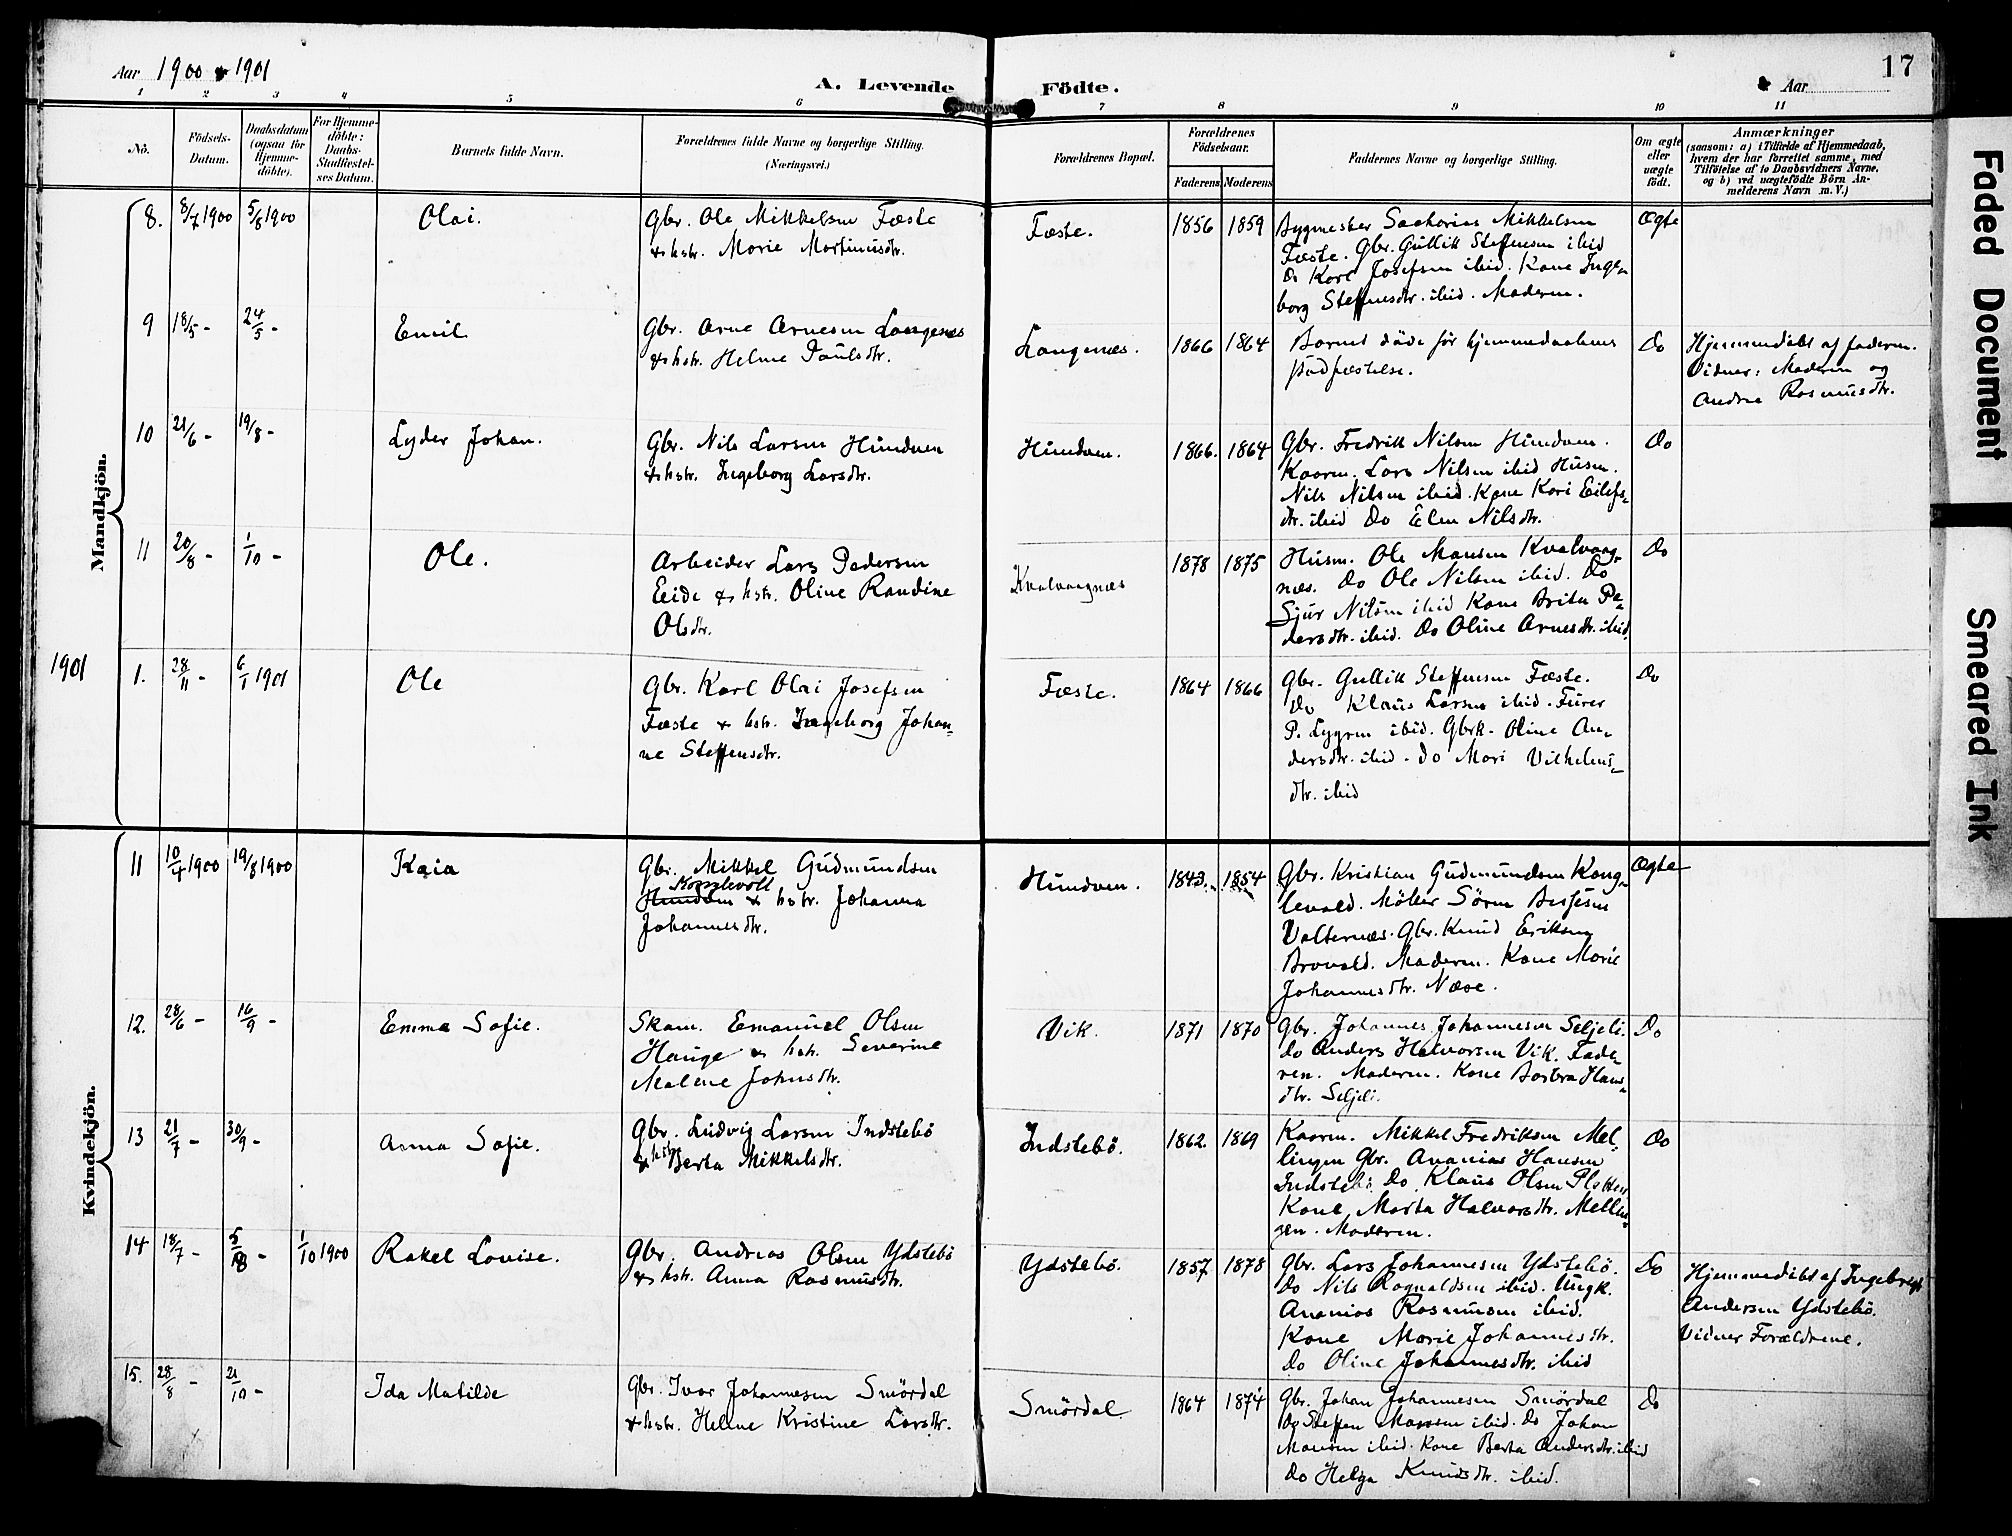 Aar 1900 & 1901
A. Levende Födte.
Aar
17
1 2 3 4 5 6 7 8 9 10 11
No.
Födsels-Datum.
Daabsdatum (ogsaa for Hjemme-döbte).
For Hjemme-döbte: Daabs-Stadfæstel-ses Datum.
Barnets fulde Navn.
Forældrenes fulde Navne og borgerlige Stilling.
(Næringsvei.)
Forældrenes Bopæl.
Forældrenes Födselsaar.
Faderens Moderens
Faddernes Navne og borgerlige Stilling.
Om ægte eller uægte födt.
Anmærkninger
(saasom: a) i Tilfælde af Hjemmedaab, hvem der har forrettet samme, med Tilföielse af to Daabsvidners Navne, og b) ved uægtefödte Börn An-melderens Navn m. V.)
Mandkjön.
8. 8/7 1900 5/8 1900 Olai.
Gbr. Ole Mikkelsen Fæste
& hstr. Marie Martinusdtr.
Fæste. 1856 1859
Bygmester Sacharias Mikkelsen
Fæste. Gbr. Gullik Steffensen ibid
Do Karl Josefsen ibid. Kone Inge-
borg Steffensdtr. ibid. Moderen.
Ægte
9 18/5 - 24/5 - Emil
Gbr. Arne Arnesen Langenæs
& hstr. Helene Paulsdtr.
Langenæs. 1866 1864
Barnet döde för hjemmedaabens
stadfæstelse.
Do
Hjemmedöbt af faderen.
Vidner: Moderen og
Andrea Rasmusdtr.
10 21/6 - 19/8 - Lyder Johan.
Gbr. Nils Larsen Hundven
& hstr. Ingeborg Larsdtr.
Hundven. 1866. 1864
Gbr. Fredrik Nilsen Hundven.
Kaarm. Lars Nilsen ibid Husm.
Nils Nilsen ibid. Kone Kari Eilefs-
dtr. ibid Do Elen Nilsdtr.
Do
11 20/8 - 1/10 - Ole.
Arbeider Lars Pedersen
Eide & hstr. Oline Randine
Olsdtr.
Kvalvaagnæs 1878 1875
Husm. Ole Monsen Kvalvaag-
næs. Do Ole Nilsen ibid. Do
Sjur Nilsen ibid Kone Brita Pe-
dersdtr. ibid. Do Oline Arnesdtr. ibid.
Do
1901 1. 28/11 - 6/1 1901 Ole
Gbr. Karl Olai Josefsen
Fæste & hstr. Ingeborg Johan-
ne Steffensdtr.
Fæste. 1864 1866
Gbr. Gullik Steffensen Fæste.
Do Klaus Larsen ibid. Furer
P. Lygren ibid. Gbrk. Oline An-
dersdtr. ibid. Do Mari Vilhelms-
dtr. ibid
Do
Kvindekjön.
11 10/4 1900 19/8 1900 Kaia
Gbr. Mikkel Gudmundsen
Konglevoll
Hundven & hstr. Johanna
Johannesdtr.
Hundven. 1843. 1854
Gbr. Kristian Gudmundsen Kong-
levold. Möller Sören
Gbr. Knud Eriksen
Brovold. Moderen. Kone Marie
Johannesdtr. Næse.
Ægte
12. 28/6 - 16/9 - Emma Sofie.
Skom. Emanuel Olsen
Hauge & hstr. Severine
Malene Johnsdtr.
Vik. 1871 1870
Gbr. Johannes Johannesen Seljeli.
Do Anders Halvorsen Vik. Fade-
ren. Moderen. Kone Barbra Hans-
dtr. Seljeli.
Do
13 21/7 - 30/9 - Anna Sofie.
Gbr. Ludvig Larsen Indstebö
& hstr. Berta Mikkelsdtr.
Indstebö. 1862. 1869
Kaarm. Mikkel Fredriksen Mel-
lingen Gbr. Ananias Hansen
Indstebö. Do Klaus Olsen
Kone Marta Halvorsdtr. Mellin-
gen. Moderen.
Do
14 18/7 - 5/8 - 1/10 1900 Rakel Lovise.
Gbr. Andreas Olsen Ydstebö
& hstr. Anna Rasmusdtr.
Ydstebö. 1857 1878
Gbr. Lars Johannesen Ydstebö.
Do Nils Ragnaldsen ibid. Ungk.
Ananias Rasmusen ibid.
Kone Marie Johannesdtr.
Do Oline Johannesdtr. ibid
Do
Hjemmedöbt af Ingebrigt
Andersen Ydstebö.
Vidner Forældrene.
15. 28/8 - 21/10 - Ida Matilde
Gbr. Ivar Johannesen Smördal
& hstr. Helene Kristine Larsdtr.
Smördal 1864 1874
Gbr. Johan Johannesen Smördal
Do Steffen Monsen ibid. Do Johan
Monsen ibid. Kone Berta Andersdtr. ibid
Do Helga Knudsdtr. ibid.
Do
Faded Document
Smeared Ink